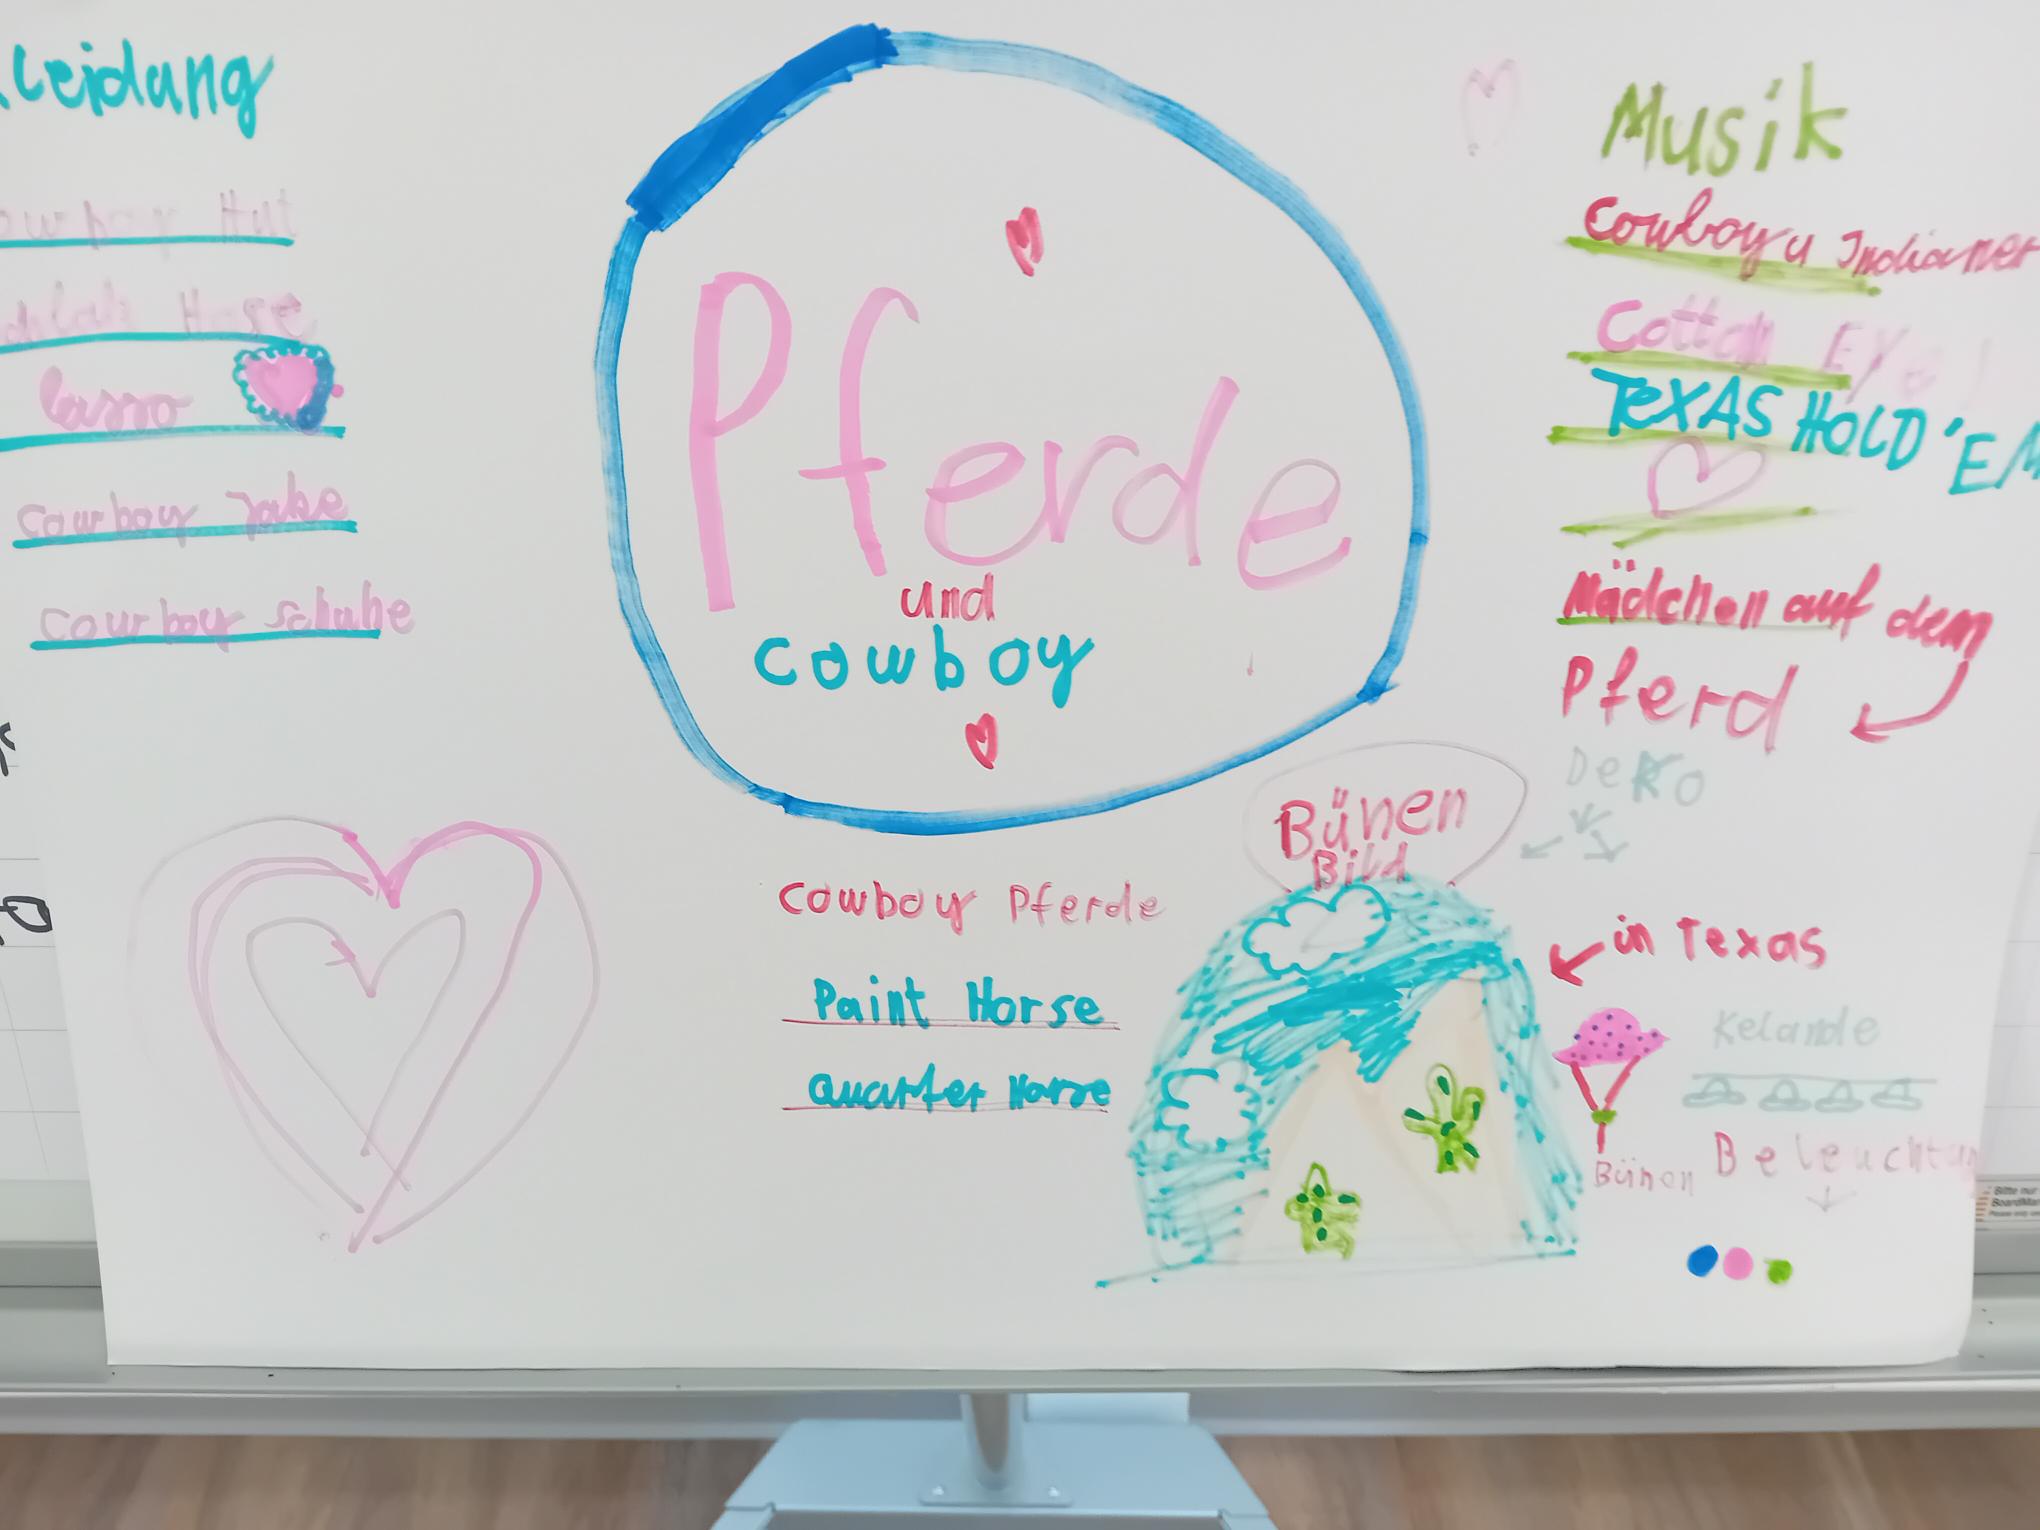 leidung
owboy Hut
Hose
lasso
cowboy Jake
cowboy schuhe
Pferde
und
cowboy
Musik
Cowboy u Indianer
Cotton Eye
TEXAS HOLD 'EM
Mädchen auf dem
Pferd
DeKo
Bünen
Bild
cowboy Pferde
Paint Horse
Quarter Horse
in Texas
Kelande
Bünen Beleuchtung
Bitte nur
BoardMar